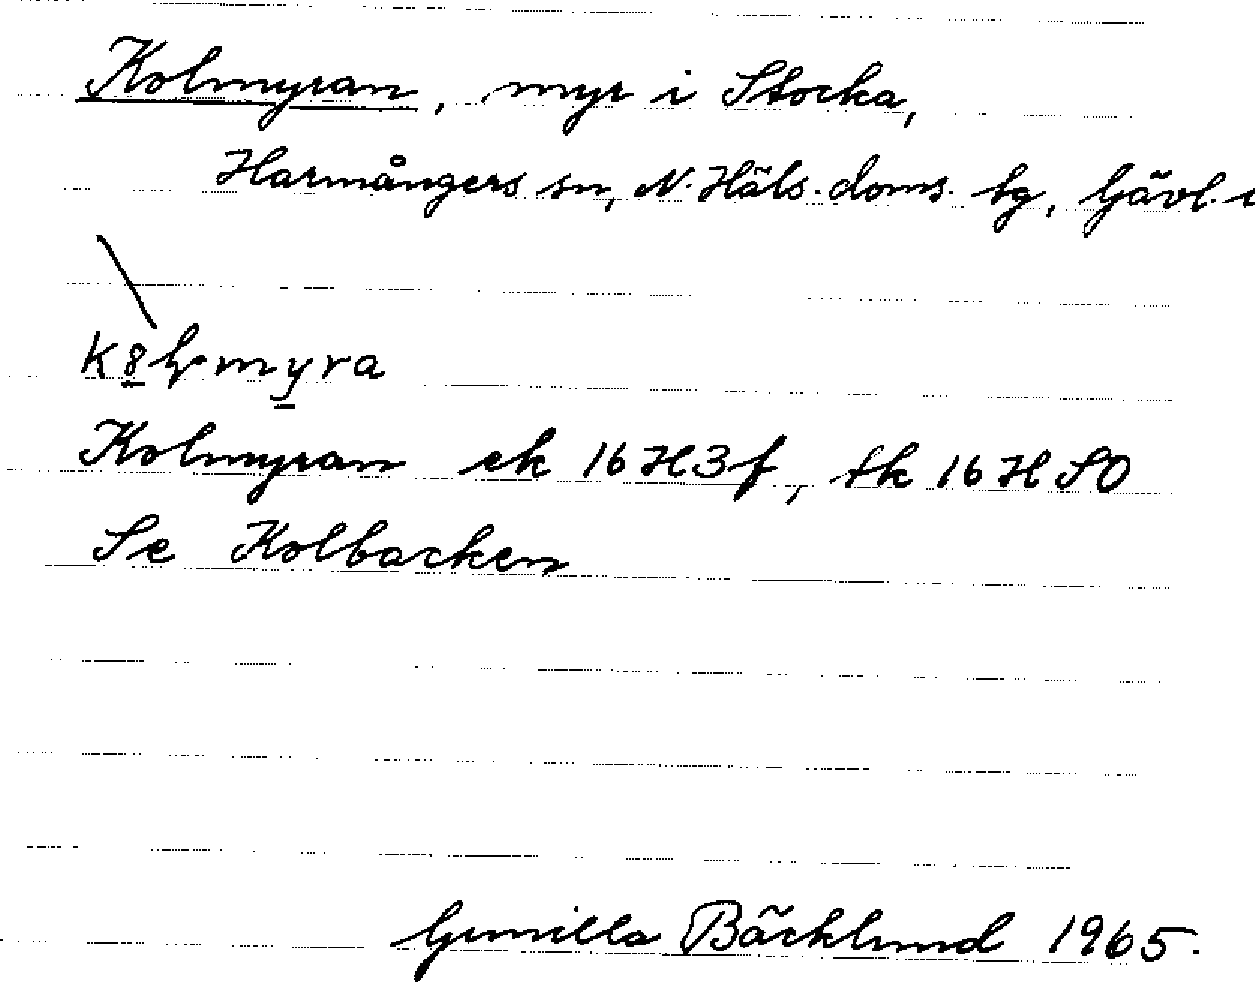 Kolmyran, myr i Stocka,
Harmångers sn, N. Häls. doms. tg, Gävl.
Kolmyran ek 16H3f, tk 16H SO
Se Kolbacken
Gunilla Bäcklund 1965.